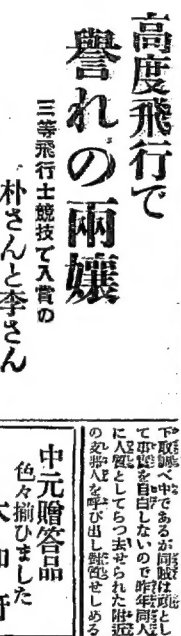 高度飛行で
譽れの兩孃
三等飛行士競技で入賞の
朴さんと李さん
下取調べ中であるが同賊は頑とし
て事實を自白しないので昨年同人
に人質としてらつ去せられた附近
の支那人を呼び出し對質せしめる
中元贈答品
色々揃ひました